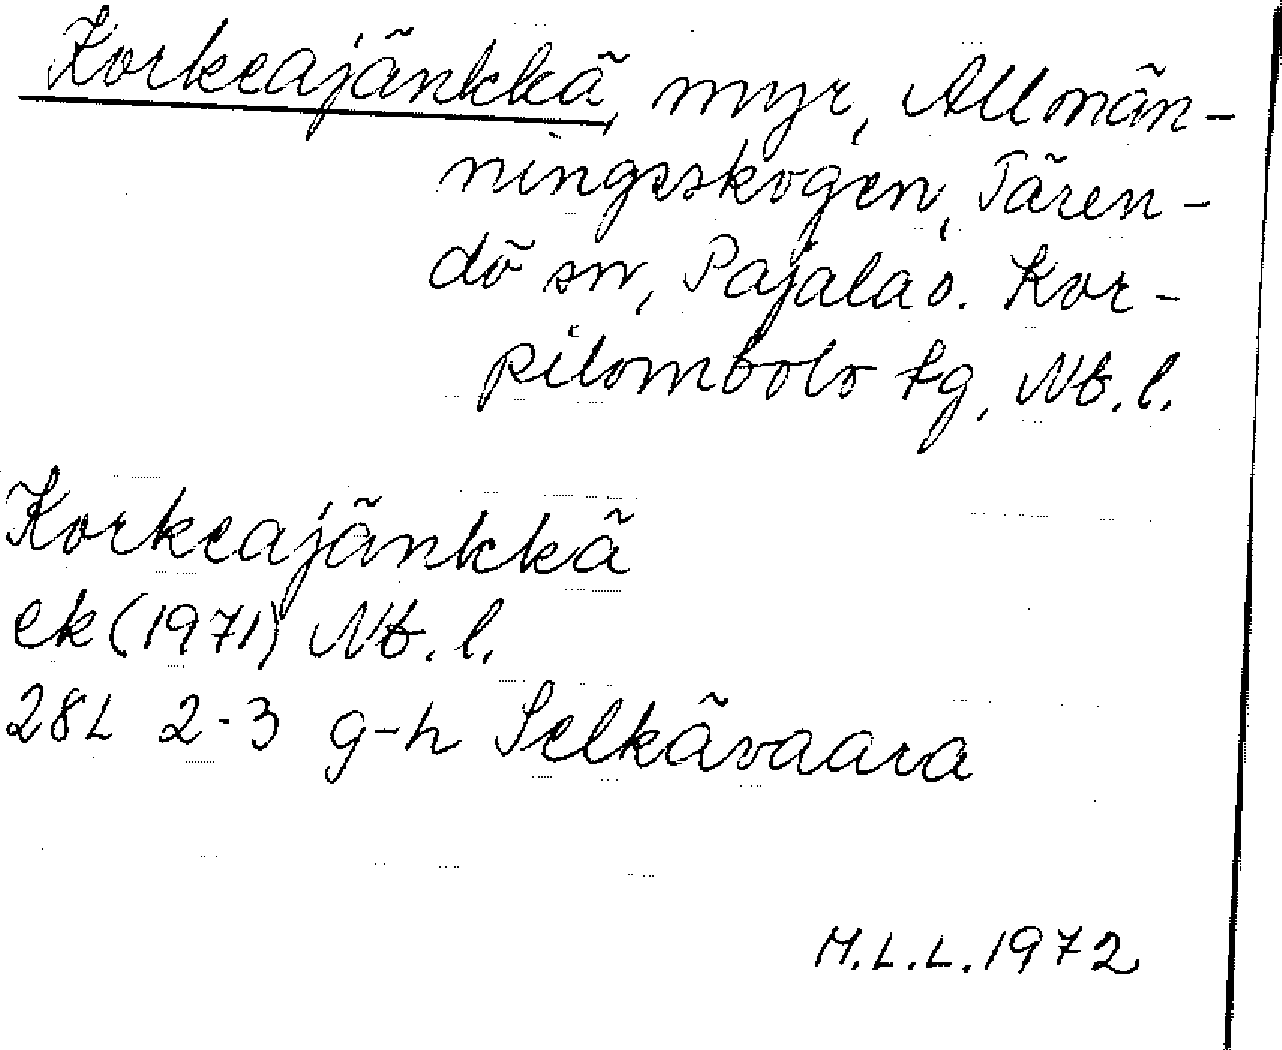 Korkeajänkkä, myr, Allmän-
ningsskogen, Tären-
dö sn, Pajala o. Kor-
pilombolo tg, Nb. l.
Korkeajänkkä
ek (1971) Nb. l.
28L 2-3 g-h Selkävaara
M.L.L. 1972